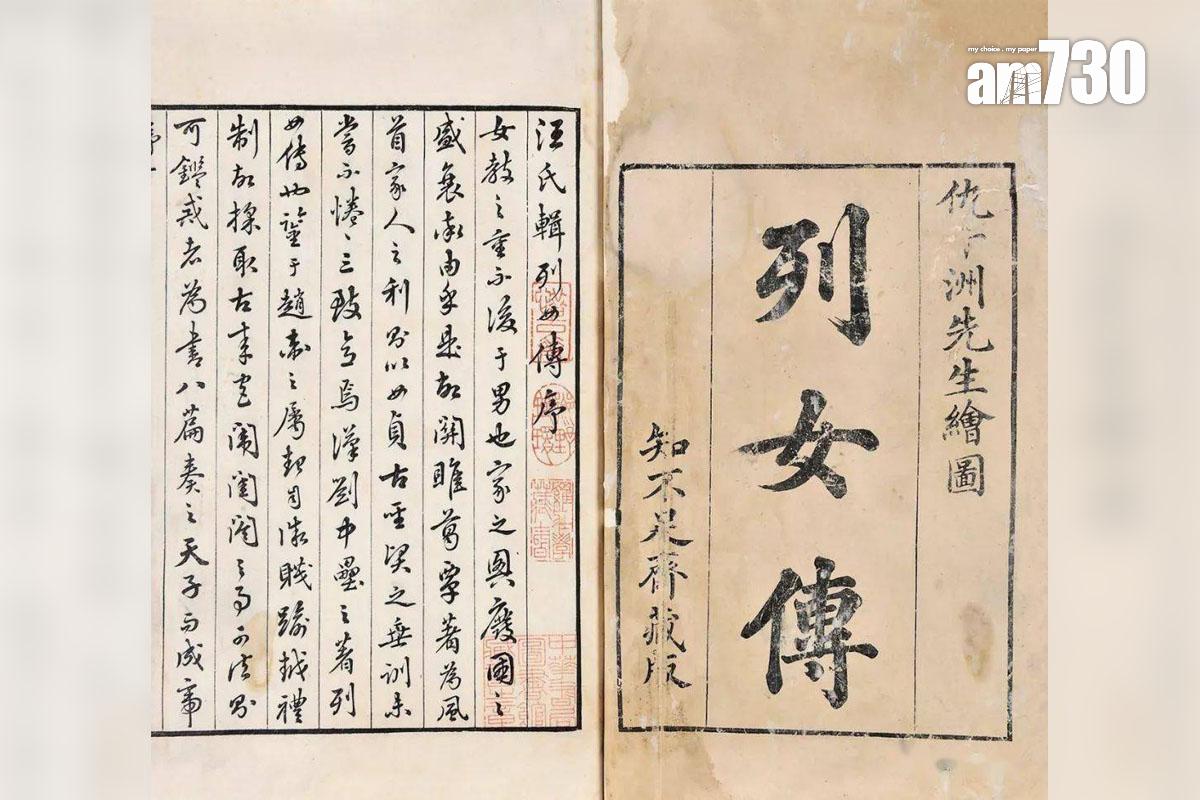 my choice . my paper
am730
仇十洲先生繪圖
列女傳
知不足齋藏版
汪氏輯列女傳序
女教之重不後于男也家之興廢國之
盛衰率由乎是故關雎葛覃著為風
首家人之利則以女貞古聖賢之垂訓未
嘗不惓々三致意焉漢劉中壘之著列
女傳也 于趙 之屬起自微賤踰越禮
制故採取古來宮闈閨閤之事可法則
可鑑戒者為書八篇奏之天子而成帝